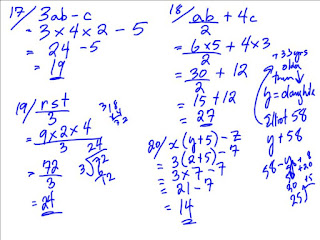 17/ 3ab-c
= 3×4×2-5
= 24-5
= 19
18/ ab/2 + 4c
= 6×5/2 + 4×3
= 30/2 + 12
= 15+12
= 27
19/ rst/3
= 9×2×4/3
= 72/3
= 24
318
×4
72
24
3)72
72
20/ x(y+5)-z
= 3(2+5)-7
= 3×7-7
= 21-7
= 14
→33yrs
older
than
y=daughter
Elliot 58
y+58
58-
25